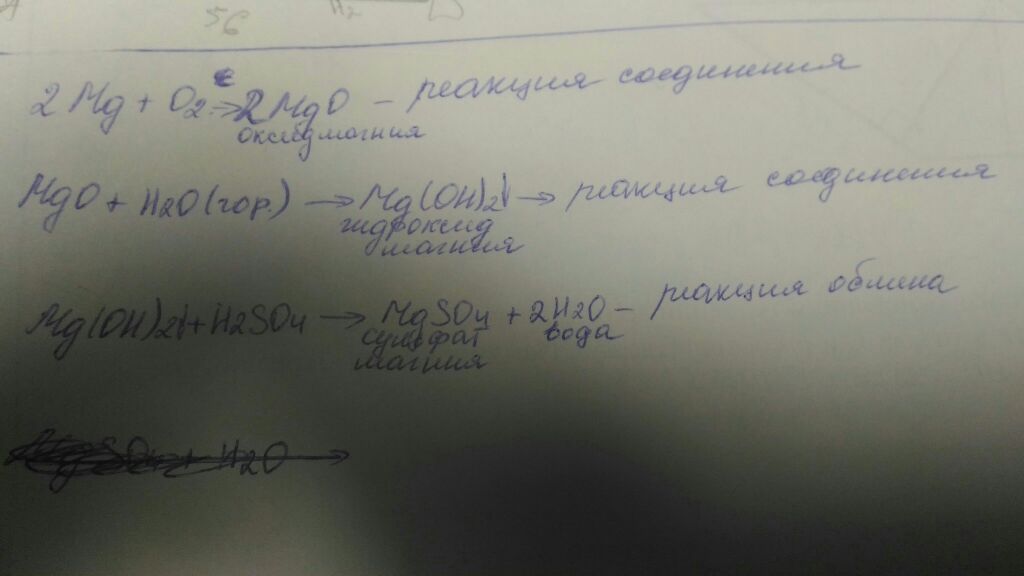 56 H2
2Mg + O2 → 2MgO - реакция соединения
оксид магния
MgO + H2O (гор.) → Mg(OH)2↓ → реакция соединения
гидроксид
магния
Mg(OH)2↓ + H2SO4 → MgSO4 + 2H2O - реакция обмена
сульфат вода
магния
+ H2O →